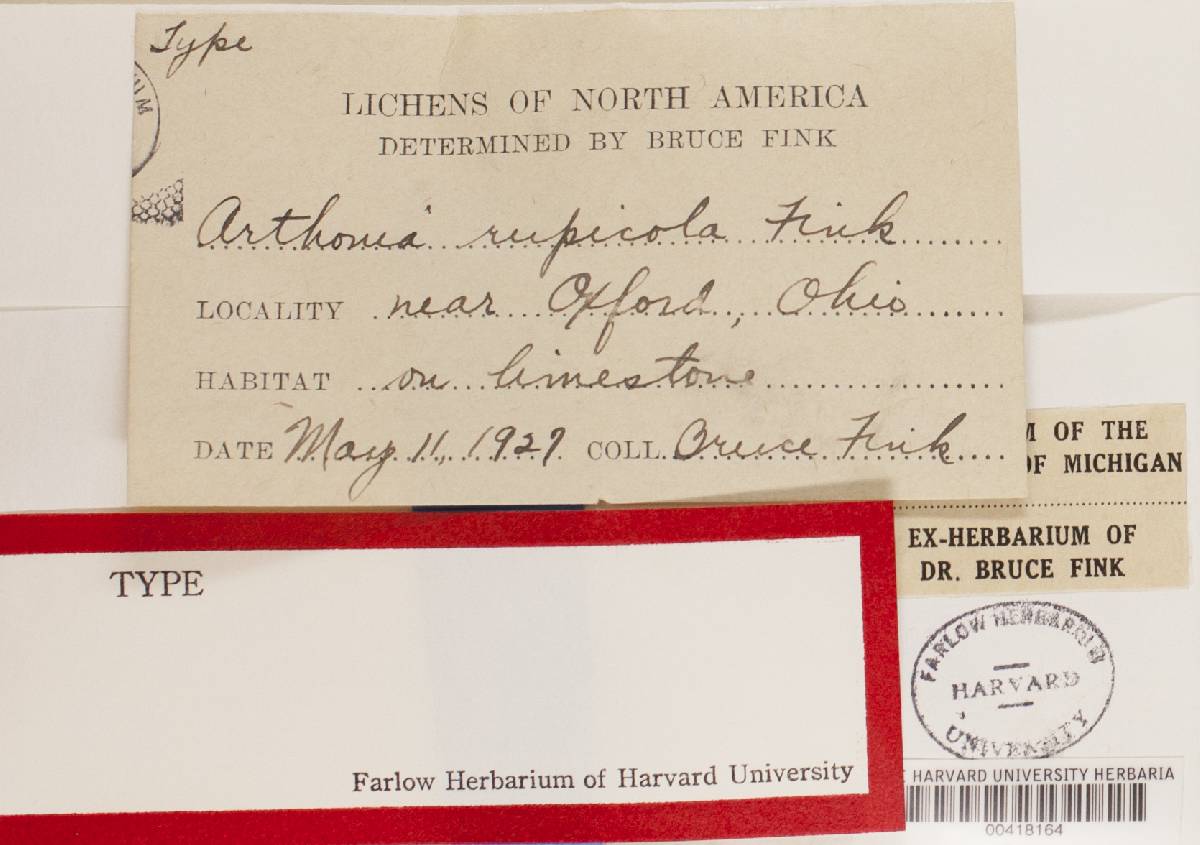 Type
LICHENS OF NORTH AMERICA
DETERMINED BY BRUCE FINK
Arthonia rupicola Fink
LOCALITY near Oxford, Ohio
HABITAT on limestone
DATE May 11, 1927 COLL. Bruce Fink
M OF THE
OF MICHIGAN
EX-HERBARIUM OF
DR. BRUCE FINK
TYPE
Farlow Herbarium of Harvard University
FARLOW HERBARIUM
HARVARD
UNIVERSITY
HARVARD UNIVERSITY HERBARIA
00418164